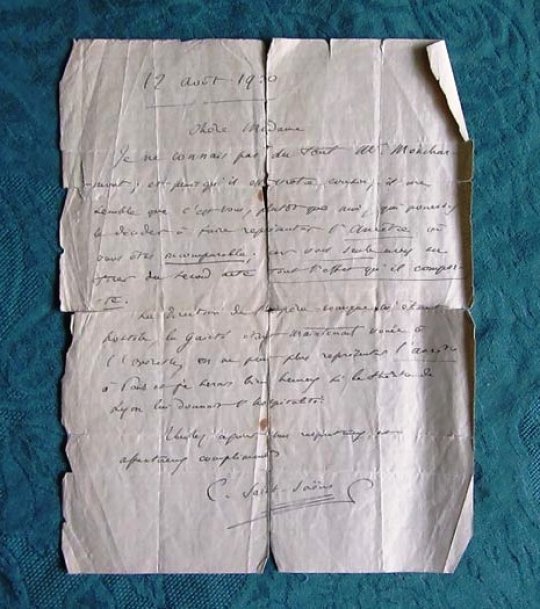 12 août 1920
Chère Madame
Je ne connais pas du tout Mr Monchar-
mont; et puisqu'il est votre, il me
semble que c'est vous, plutôt que moi, qui pouvez
le décider à faire représenter l'Ancêtre où
vous êtes incomparable; car vous seule avez su
tirer du second acte tout l'effet qu'il compor-
te.
La direction de l'Opéra-comique étant
hostile, la Gaîté étant maintenant vouée à
l'Opérette, on ne peut plus représenter l'Ancêtre
à Paris et je serais bien heureux si le théâtre de
Lyon lui donnait l'hospitalité.
Veuillez agréer mes
affectueux compliments
C. Saint-Saëns